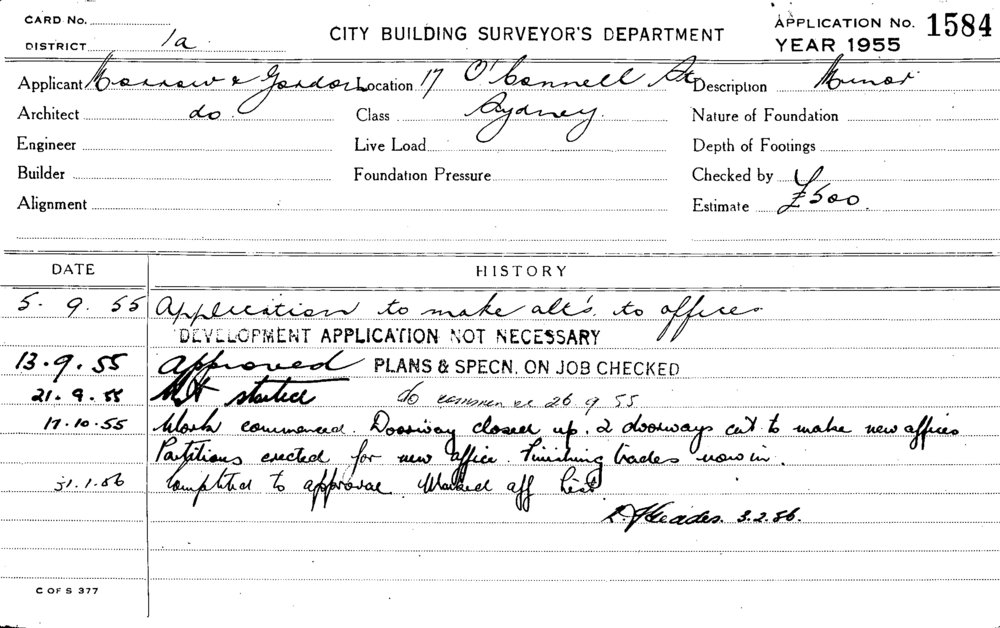 CARD No.
DISTRICT 1a
CITY BUILDING SURVEYOR'S DEPARTMENT
APPLICATION No. 1584
YEAR 1955
Applicant Morrow & Gordon Location 17 O'Connell St. Description Minor
Architect do. Class Sydney. Nature of Foundation
Engineer Live Load Depth of Footings
Builder Foundation Pressure Checked by
Alignment Estimate £500.
DATE HISTORY
5. 9. 55 Application to make alt's. to offices
DEVELOPMENT APPLICATION NOT NECESSARY
13.9.55 Approved PLANS & SPECN. ON JOB CHECKED
21.9.55 Not started to commence 26 9 55
17.10.55 Work commenced. Doorway closed up. 2 doorways cut to make new offices
Partitions erected for new office. Finishing trades now in.
31.1.56 Completed to approval Marked off list
3.2.56.
C OF S 377